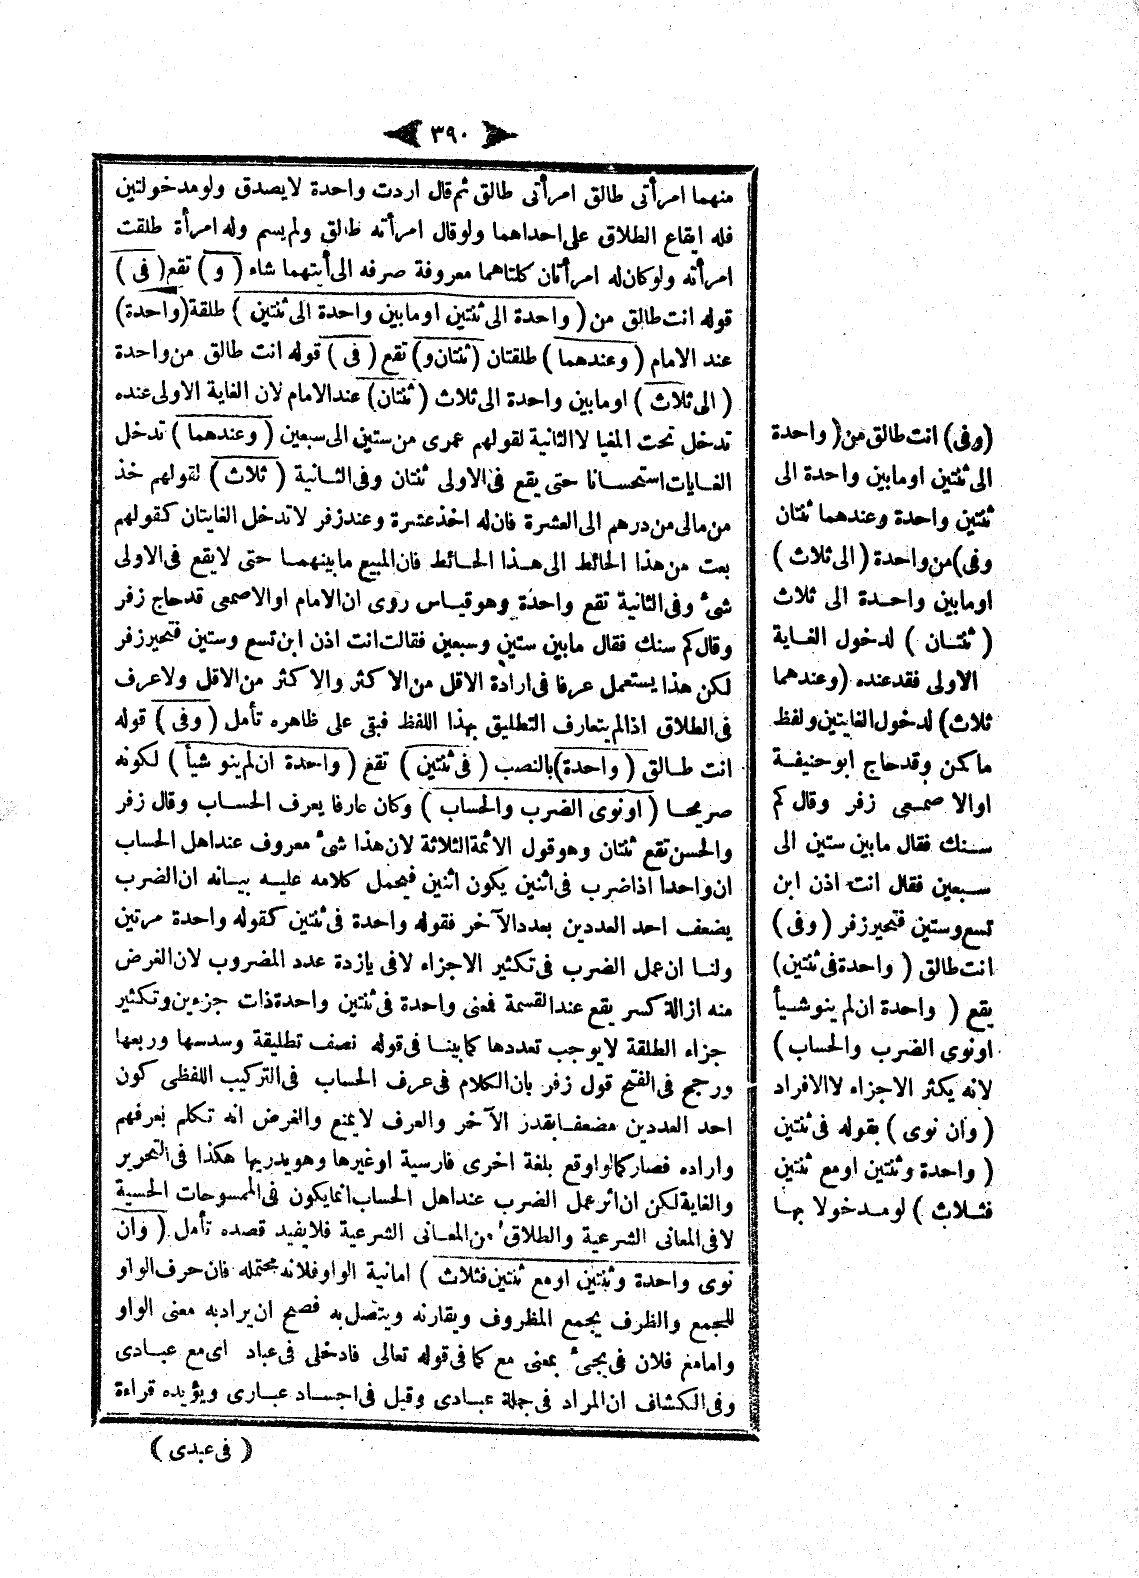 ٣٩٠
منهما امرأتى طالق امرأتى طالق ثم قال اردت واحدة لايصدق ولو مدخولتين
فله ايقاع الطلاق على احداهما ولو قال امرأته طالق ولم يسم وله امرأة طلقت
امرأته ولو كان له امرأتان كلتاهما معروفة صرفه الى أيتهما شاء ( و ) تقع ( فى )
قوله انت طالق من ( واحدة الى ثنتين او مابين واحدة الى ثنتين ) طلقة (واحدة)
عند الامام ( وعندهما ) طلقتان (ثنتان و) تقع ( فى ) قوله انت طالق من واحدة
( الى ثلاث ) او مابين واحدة الى ثلاث ( ثنتان) عند الامام لان الغاية الاولى عنده
تدخل تحت المغيا لا الثانية لقولهم عمرى من ستين الى سبعين ( وعندهما ) تدخل
الغايات استحسانا حتى يقع فى الاولى ثنتان وفى الثانية ( ثلاث ) لقولهم خذ
من مالى من درهم الى العشرة فان له اخذ عشرة وعند زفر لاتدخل الغايتان كقولهم
بعت من هذا الحائط الى هذا الحائط فان المبيع مابينهما حتى لايقع فى الاولى
شئ وفى الثانية تقع واحدة وهو قياس روى ان الامام او الاصمعى قد حاج زفر
وقال كم سنك فقال مابين ستين وسبعين فقالت انت اذن ابن تسع وستين فتحير زفر
لكن هذا يستعمل عرفا فى ارادة الاقل من الاكثر والاكثر من الاقل ولاعرف
فى الطلاق اذ لم يتعارف التطليق بهذا اللفظ فبقى على ظاهره تأمل ( وفى ) قوله
انت طالق ( واحدة) بالنصب ( فى ثنتين ) تقع ( واحدة ان لم ينو شيأ ) لكونه
صريحا ( او نوى الضرب والحساب ) وكان عارفا يعرف الحساب وقال زفر
والحسن تقع ثنتان وهو قول الائمة الثلاثة لان هذا شئ معروف عند اهل الحساب
ان واحدا اذا ضرب فى اثنين يكون اثنين فيحمل كلامه عليه بيانه ان الضرب
يضعف احد العددين بعدد الآخر فقوله واحدة فى ثنتين كقوله واحدة مرتين
ولنا ان عمل الضرب فى تكثير الاجزاء لافى يازدة عدد المضروب لان الغرض
منه ازالة كسر يقع عند القسمة فمعنى واحدة فى ثنتين واحدة ذات جزءين وتكثير
جزاء الطلقة لايوجب تعددها كما بينا فى قوله نصف تطليقة وسدسها وربعها
ورجح فى الفتح قول زفر بان الكلام فى عرف الحساب فى التركيب اللفظى كون
احد العددين مضعفا بقدر الآخر والعرف لايمنع والغرض انه تكلم بعرفهم
واراده فصار كما لو اوقع بلغة اخرى فارسية او غيرها وهو يدريها هكذا فى التحرير
والغاية لكن ان اثر عمل الضرب عند اهل الحساب انما يكون فى الممسوحات الحسية
لافى المعانى الشرعية والطلاق من المعانى الشرعية فلايفيد قصده تأمل ( وان
نوى واحدة وثنتين او مع ثنتين فثلاث ) امانية الواو فلانه محتمله فان حرف الواو
للجمع والظرف يجمع المظروف ويقارنه ويتصل به فصح ان يراد به معنى الواو
وامامع فلان فى يجئ بمعنى مع كما فى قوله تعالى فادخلى فى عباد اى مع عبادى
وفى الكشاف ان المراد فى جملة عبادى وقيل فى اجساد عبارى ويؤيده قراءة
( فى عبدى )
(وفى) انت طالق من ( واحدة
الى ثنتين او مابين واحدة الى
ثنتين واحدة وعندهما ثنتان
وفى) من واحدة ( الى ثلاث )
او مابين واحدة الى ثلاث
( ثنتان ) لدخول الغاية
الاولى فقد عنده (وعندهما
ثلاث) لدخول الغايتين ولفظ
ماكمن وقد حاج ابو حنيفة
او الاصمعى زفر وقال كم
سنك فقال مابين ستين الى
سبعين فقال انت اذن ابن
تسع وستين فتحير زفر ( وفى )
انت طالق ( واحدة فى ثنتين)
يقع ( واحدة ان لم ينو شيأ
او نوى الضرب والحساب )
لانه يكثر الاجزاء لا الافراد
( وان نوى ) بقوله فى ثنتين
( واحدة وثنتين او مع ثنتين
فثلاث ) لو مدخولا بها